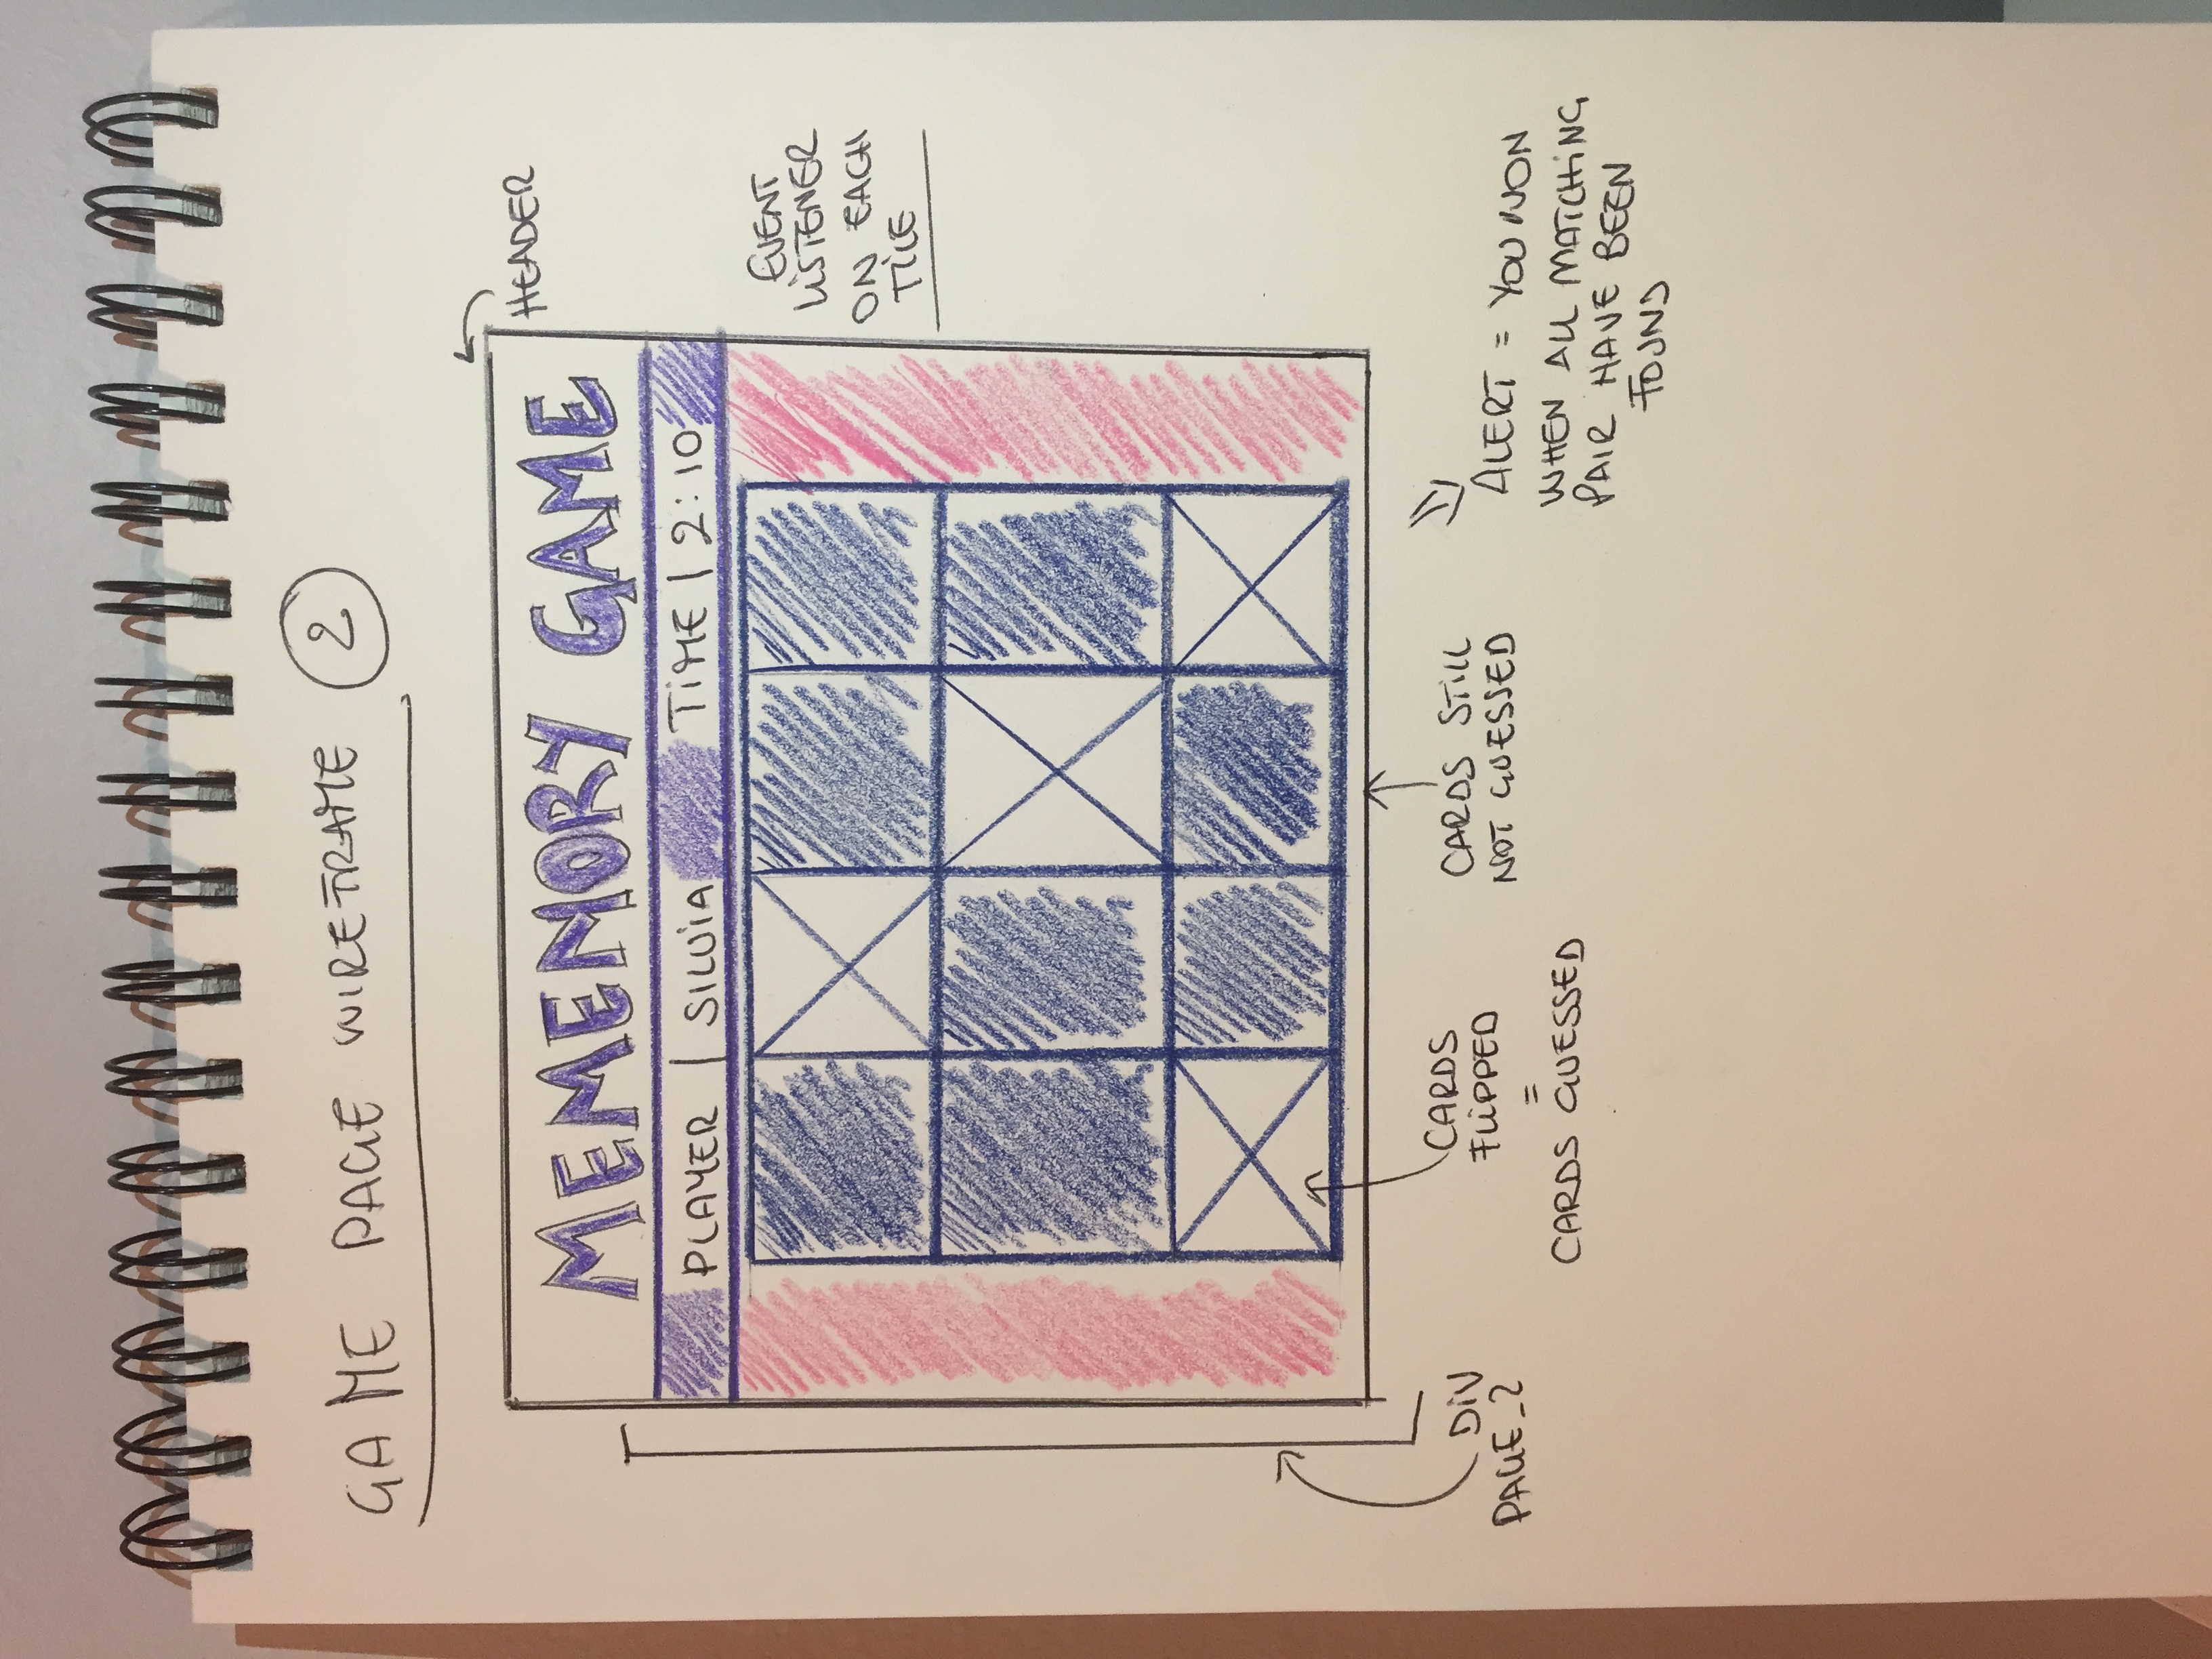 GAME PAGE WIREFRAME 2
HEADER
MEMEMORY GAME
PLAYER | SILVIA TIME | 2:10
EVENT
LISTENER
ON EACH
TILE
DIV
PAGE_2
CARDS
FLIPPED
=
CARDS GUESSED
CARDS STILL
NOT GUESSED
ALERT = YOU WON
WHEN ALL MATCHING
PAIR HAVE BEEN
FOUND